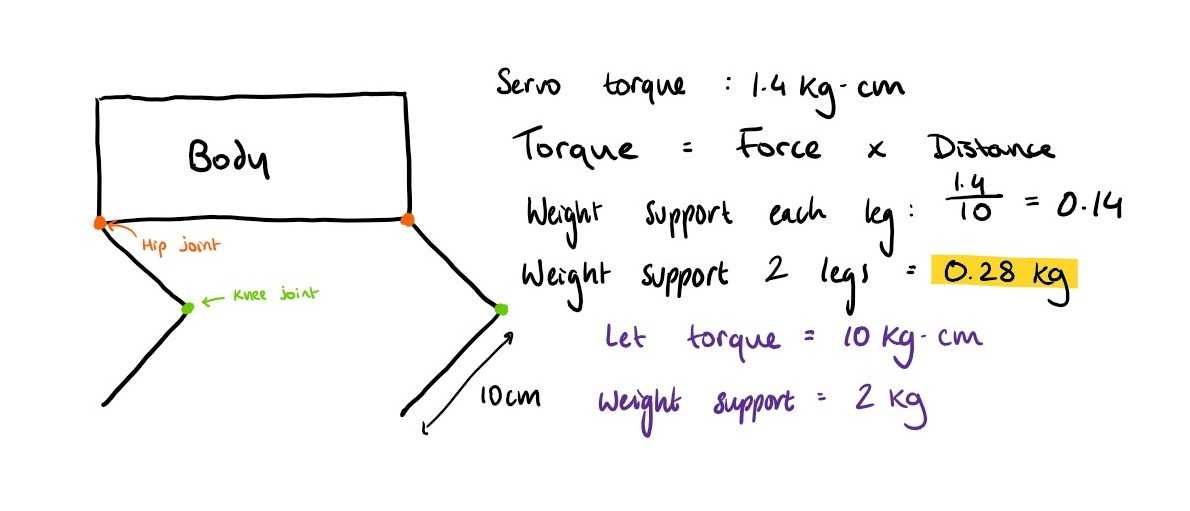 Body
Hip joint
Knee joint
10cm
Servo torque : 1.4 Kg·cm
Torque = Force x Distance
Weight support each leg : 1.4/10 = 0.14
Weight support 2 legs = 0.28 kg
Let torque = 10 Kg·cm
Weight support = 2 Kg